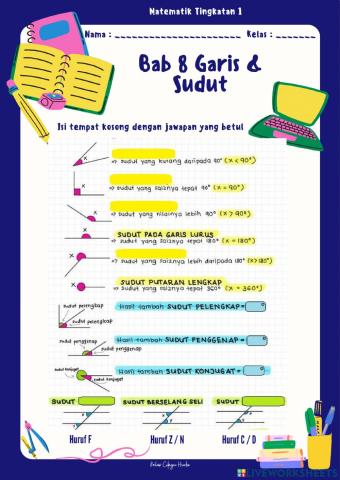 Matematik Tingkatan 1
Nama : ____________________ Kelas : __________
Bab 8 Garis &
Sudut
Isi tempat kosong dengan jawapan yang betul
x
⇒ sudut yang kurang daripada 90° (x < 90°)
x
⇒ sudut yang saiznya tepat 90° (x = 90°)
x
⇒ sudut yang nilainya lebih 90° (x > 90°)
SUDUT PADA GARIS LURUS
x
⇒ sudut yang saiznya tepat 180° (x = 180°)
x
⇒ sudut yang saiznya lebih daripada 180° (x > 180°)
SUDUT PUTARAN LENGKAP
x
⇒ sudut yang saiznya tepat 360° (x = 360°)
sudut pelengkap
Hasil tambah SUDUT PELENGKAP =
sudut pelengkap
Hasil tambah SUDUT PENGGENAP =
sudut penggenap
sudut penggenap
sudut konjugat
Hasil tambah SUDUT KONJUGAT =
sudut konjugat
SUDUT
SUDUT BERSELANG SELI
SUDUT
Huruf F
Huruf Z / N
Huruf C / D
LIVEWORKSHEETS